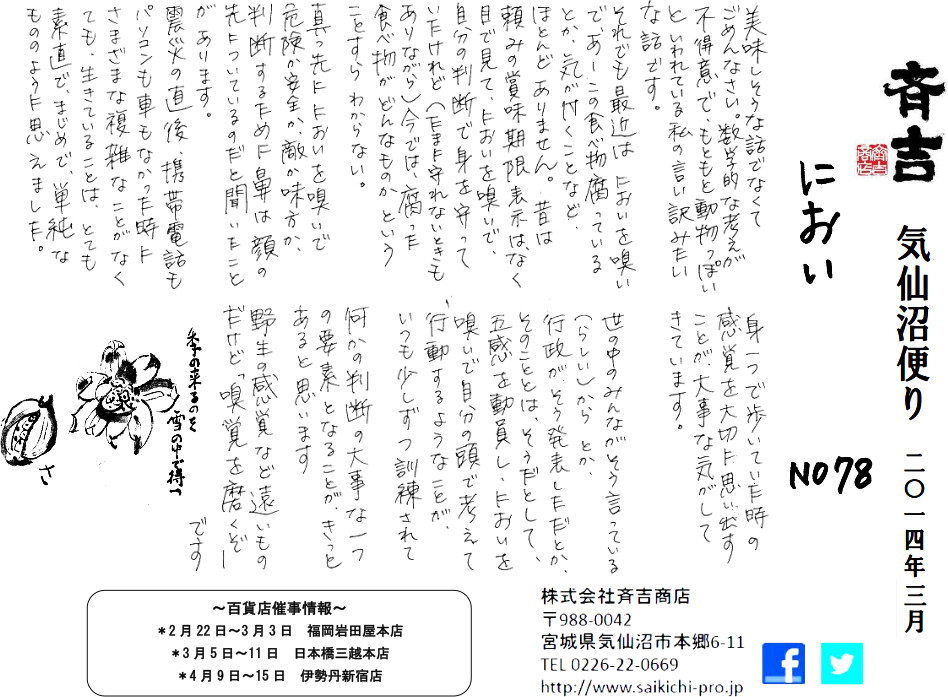 斉吉
気仙沼便り
二〇一四年三月
NO78
におい
美味しそうな話でなくて
ごめんなさい。数学的な考えが
不得意で、もともと動物っぽい
といわれている私の言い訳みたい
な話です。
それでも最近は においを嗅い
であーこの食べ物腐っている
とか、気が付くことなど、
ほとんどありません。昔は
頼みの賞味期限表示はなく
目で見て、においを嗅いで、
自分の判断で身を守って
いたけれど(たまに守れないときも
ありながら)今では、腐った
食べ物がどんなものかという
ことすらわからない。
真っ先ににおいを嗅いで
危険か安全か、敵か味方か、
判断するために鼻は顔の
先についているのだと聞いたこと
があります。
震災の直後、携帯電話も
パソコンも車もなかった時に
さまざまな複雑なことがなく
ても、生きていることは、とても
素直で、まじめで、単純な
もののように思えました。
身一つで歩いていた時の
感覚を大切に思い出す
ことが、大事な気がして
きています。
世の中のみんながそう言っている
(らしい)から とか、
行政が、そう発表しただとか、
そのこととは、そうだとして、
五感を動員し、においを
嗅いで自分の頭で考えて
行動するようなことが、
いつも少しずつ訓練されて
何かの判断の大事な一つ
の要素となることが、きっと
あると思います
野生の感覚など遠いもの
だけど、嗅覚を磨くぞー
です
季の来るのを
雪の中で待つ
さ
～百貨店催事情報～
*2月22日～3月3日 福岡岩田屋本店
*3月5日～11日 日本橋三越本店
*4月9日～15日 伊勢丹新宿店
株式会社斉吉商店
〒988-0042
宮城県気仙沼市本郷6-11
TEL 0226-22-0669
http://www.saikichi-pro.jp